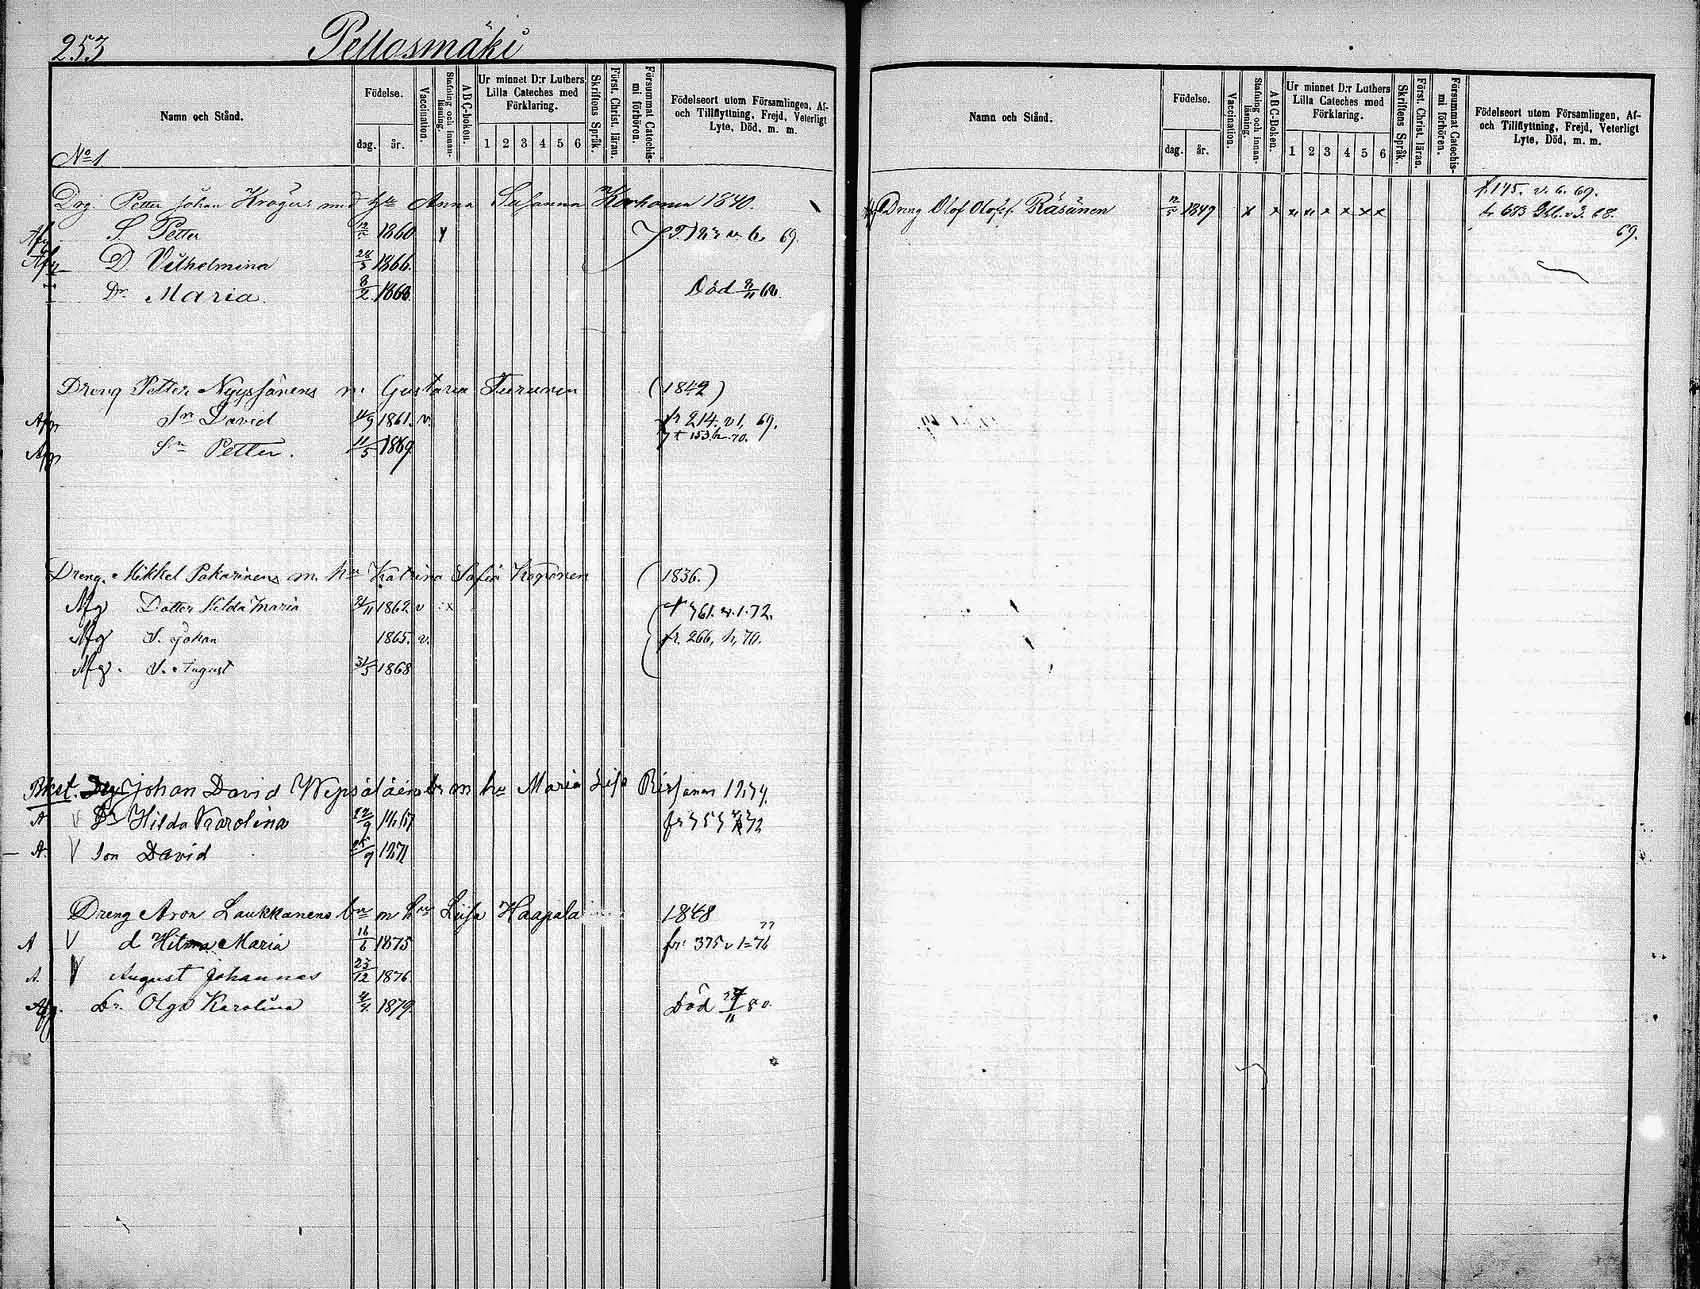 253 Pellosmäki
Namn och Stånd.
Födelse.
dag. år.
Vaccination.
Stafning och innanläsning.
ABC-boken.
Ur minnet D:r Luthers Lilla Cateches med Förklaring.
1 2 3 4 5 6
Skriftens Språk.
Först. Christ. läran.
Försummat Catechismi förhören.
Födelseort utom Församlingen, Af- och Tillflyttning, Frejd, Veterligt Lyte, Död, m. m.
No 1
Drg. Petter Johan Krögers med hu Anna Susanna Korhonen 1840.
Afg S. Petter 1860
69.
Afg D. Vilhelmina 1866.
Dr Maria. 8/2 1868. Död 8/11 68.
Dreng Petter Nyyssönens m. Gustava Turunen (1842)
Afg Sn David 1861. v. fr 214. v 1, 69.
Afg Sn Petter. 11/5 1869 153 70.
Dreng. Mikkel Pakarinens m. hu Katrina Sofia Koponen (1836.)
Afg Dotter Hilda Maria 1862. v x 761. v. 1. 72.
Afg S. Johan 1865. v. fr. 266, h, 70.
Afg. S. August 31/3 1868
Johan David Wepsäläinens br m hu Maria Lisa
A V Dr Hilda Karolina 72
A. V Son David 1871
Dreng Aron Laukkanens br m hu Lisa Haapala 1848
A V d Hilma Maria 16/6 1875 fr. 375 v 1 = 76 77
A. V August Johannes 23/12 1876
Afg. Dr. Olga Karolina 1879. Död 80.
Namn och Stånd.
Födelse.
dag. år.
Vaccination.
Stafning och innanläsning.
ABC-Boken.
Ur minnet D:r Luthers Lilla Cateches med Förklaring.
1 2 3 4 5 6
Skriftens Språk.
Först. Christ. läran.
Försummat Catechismi förhören.
Födelseort utom Församlingen, Af- och Tillflyttning, Frejd, Veterligt Lyte, Död, m. m.
f. 145. v. 6. 69.
Dreng Olof Olofss. Räsänen 1849 x x x x x x x x fr 683 v 3. 68.
69.